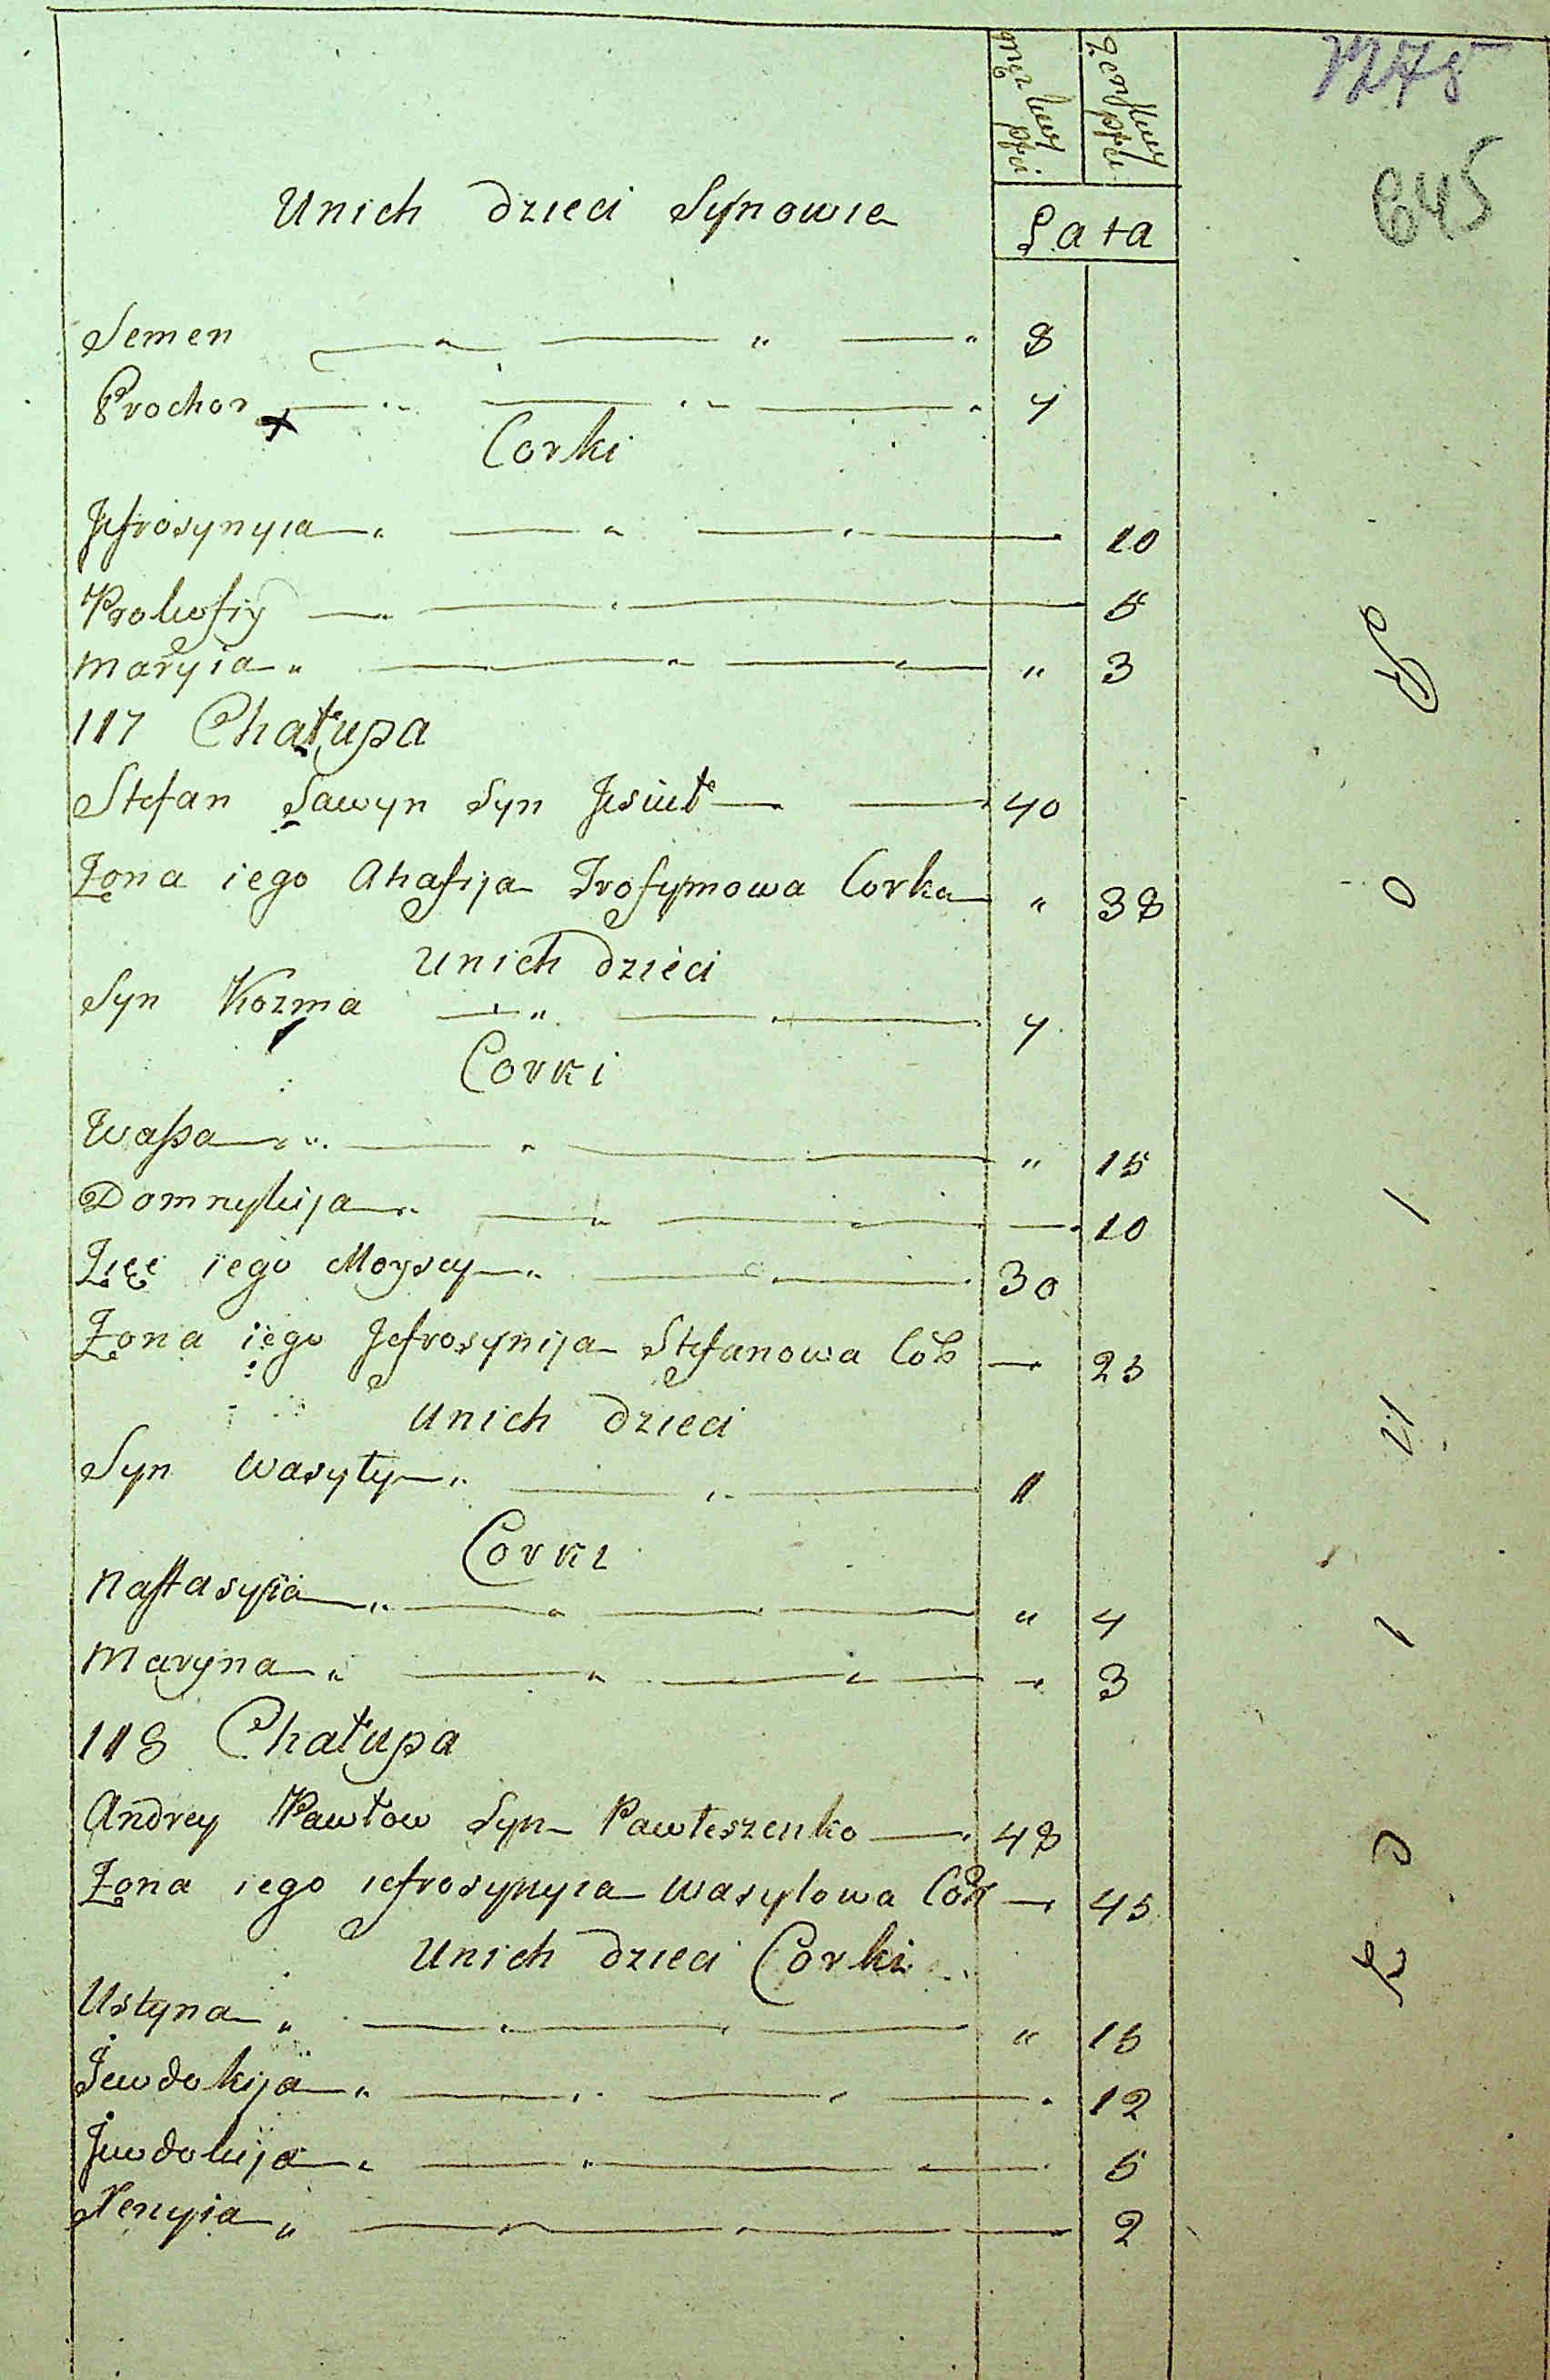 męzkiey płci
żenskiey płci
1748
645
Unich dzieci Synowie
Lata
Semen 8
Prochor 4
Corki
Jefrosynyia 10
Prokofiy 5
Maryia " 3
117 Chałupa
Stefan Sawyn Syn Jesiuł 40
Żona iego Ahafija Trofymowa Corka " 38
Unich dzieci
Syn Kozma 4
Corki
Wassa " 15
Domnykija 10
Zięć iego Moysey 30
Żona iego Jefrosynija Stefanowa Cor 25
Unich dzieci
Syn Wasyły 11
Corki
Nastasyia " 4
Maryna 3
118 Chałupa
Andrey Pawłow Syn Pawłeszenko 48
Żona iego iefrosynyia Wasylowa Cor 45
Unich dzieci Corki
Ustyna " 15
Jewdokija 12
Jewdokija 5
Xenyia 2